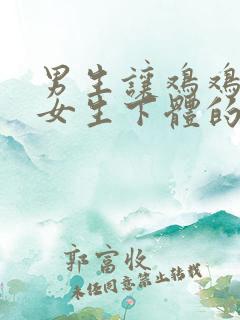 男生讓鸡鸡
女生下體的
郭富收
未经同意禁止转载